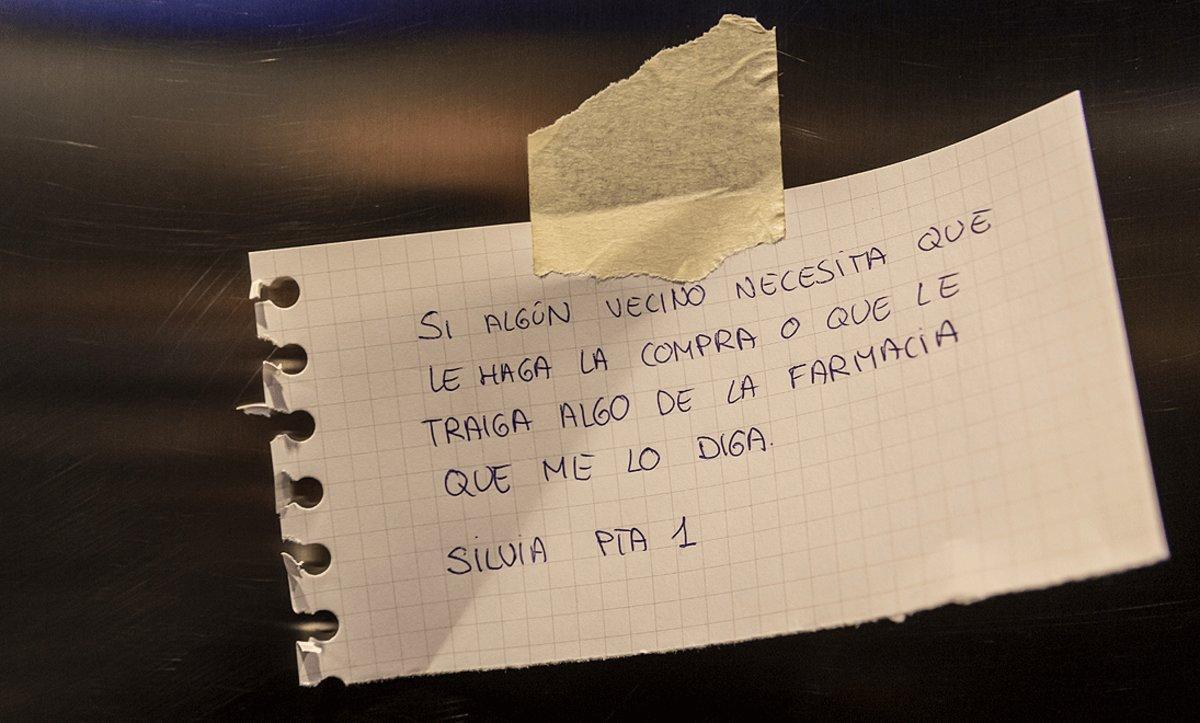 SI ALGÚN VECINO NECESITA QUE
LE HAGA LA COMPRA O QUE LE
TRAIGA ALGO DE LA FARMACIA
QUE ME LO DIGA.
SILVIA PTA 1